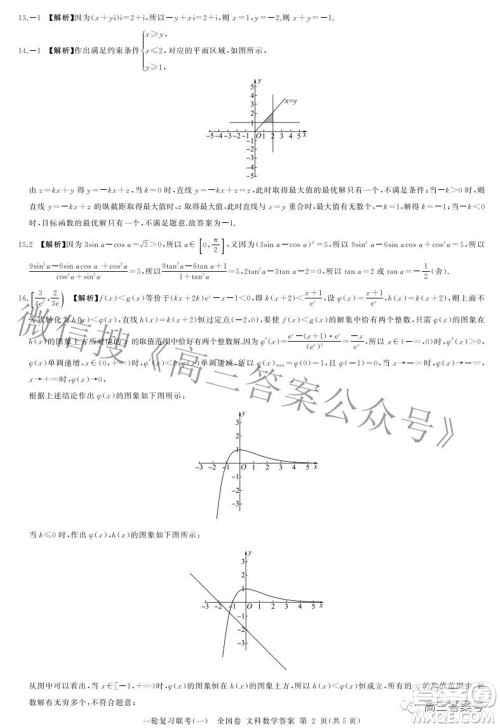 13.−1 【解析】因为(x+yi)i=2+i,所以−y+xi=2+i,则 x=1,y=−2,则 x+y=−1.
14.−1 【解析】作出满足约束条件{x≥y, x≤2, y≥1, 对应的平面区域,如图所示:
y
5
4
3
2
1
x=y
−5 −4 −3 −2 −1 O 1 2 3 4 5 x
−1
−2
−3
−4
−5
由 z=kx+y 得 y=−kx+z,当 k=0 时,直线 y=−kx+z=z,此时取得最大值的最优解只有一个,不满足条件;当−k>0 时,则
直线 y=−kx+z 的纵截距取得最大值时,z 取得最大值,此时直线与 x=y 重合时,最大值有无数个,−k=1,解得 k=−1;当−k<0
时,目标函数的最优解只有一个,不满足题意.故答案为−1.
15.2 【解析】因为 3sin α−cos α=√5>0,所以 α∈[0,π/2],又因为(3sin α−cos α)²=5,所以 9sin²α−6sin αcos α+cos²α=5,所以
(9sin²α−6sin αcos α+cos²α)/(sin²α+cos²α)=5,所以(9tan²α−6tan α+1)/(1+tan²α)=5,2tan²α−3tan α−2=0,所以 tan α=2 或 tan α=−1/2(舍).
【解析】f(x)<g(x)等价于(kx+2k)eˣ−x−1<0,即 k(x+2)<(x+1)/eˣ,设 φ(x)=(x+1)/eˣ,h(x)=k(x+2),则上面不
等式转化为 h(x)<φ(x),直线 h(x)=k(x+2)恒过定点(−2,0),要使 f(x)<g(x)的解集中恰有两个整数,只需 φ(x)的图象在
h(x)的图象上方所对应的 x 的取值范围中恰好有两个整数解,因为 φ′(x)=(eˣ−(x+1)·eˣ)/(eˣ)²=−x/eˣ,所以 x∈(−∞,0)时,φ′(x)>0,
φ(x)单调递增,x∈(0,+∞)时,φ′(x)<0,φ(x)单调递减,所以 φ(x)max=φ(0)=1,且 φ(−1)=0,当 x→−∞时,φ(x)→−∞,
x→+∞时,φ(x)→0,
根据上述结论作出 φ(x)的图象如下图所示:
y
3
2
1
−3 −2 −1 O 1 2 3 4 5 x
−1
−2
−3
当 k≤0 时,作出 φ(x),h(x)的图象如下图所示:
y
3
2
1
−3 −2 −1 O 1 2 3 4 5 x
−1
−2
−3
从图中可以看出,当 x∈[−1,+∞)时,φ(x)≥h(x)恒成立,所有的
数解有无穷多个,不符合题意;
一轮复习联考(一) 全国卷 文科数学答案 第 2 页(共 5 页)
微信搜《高三答案公众号》